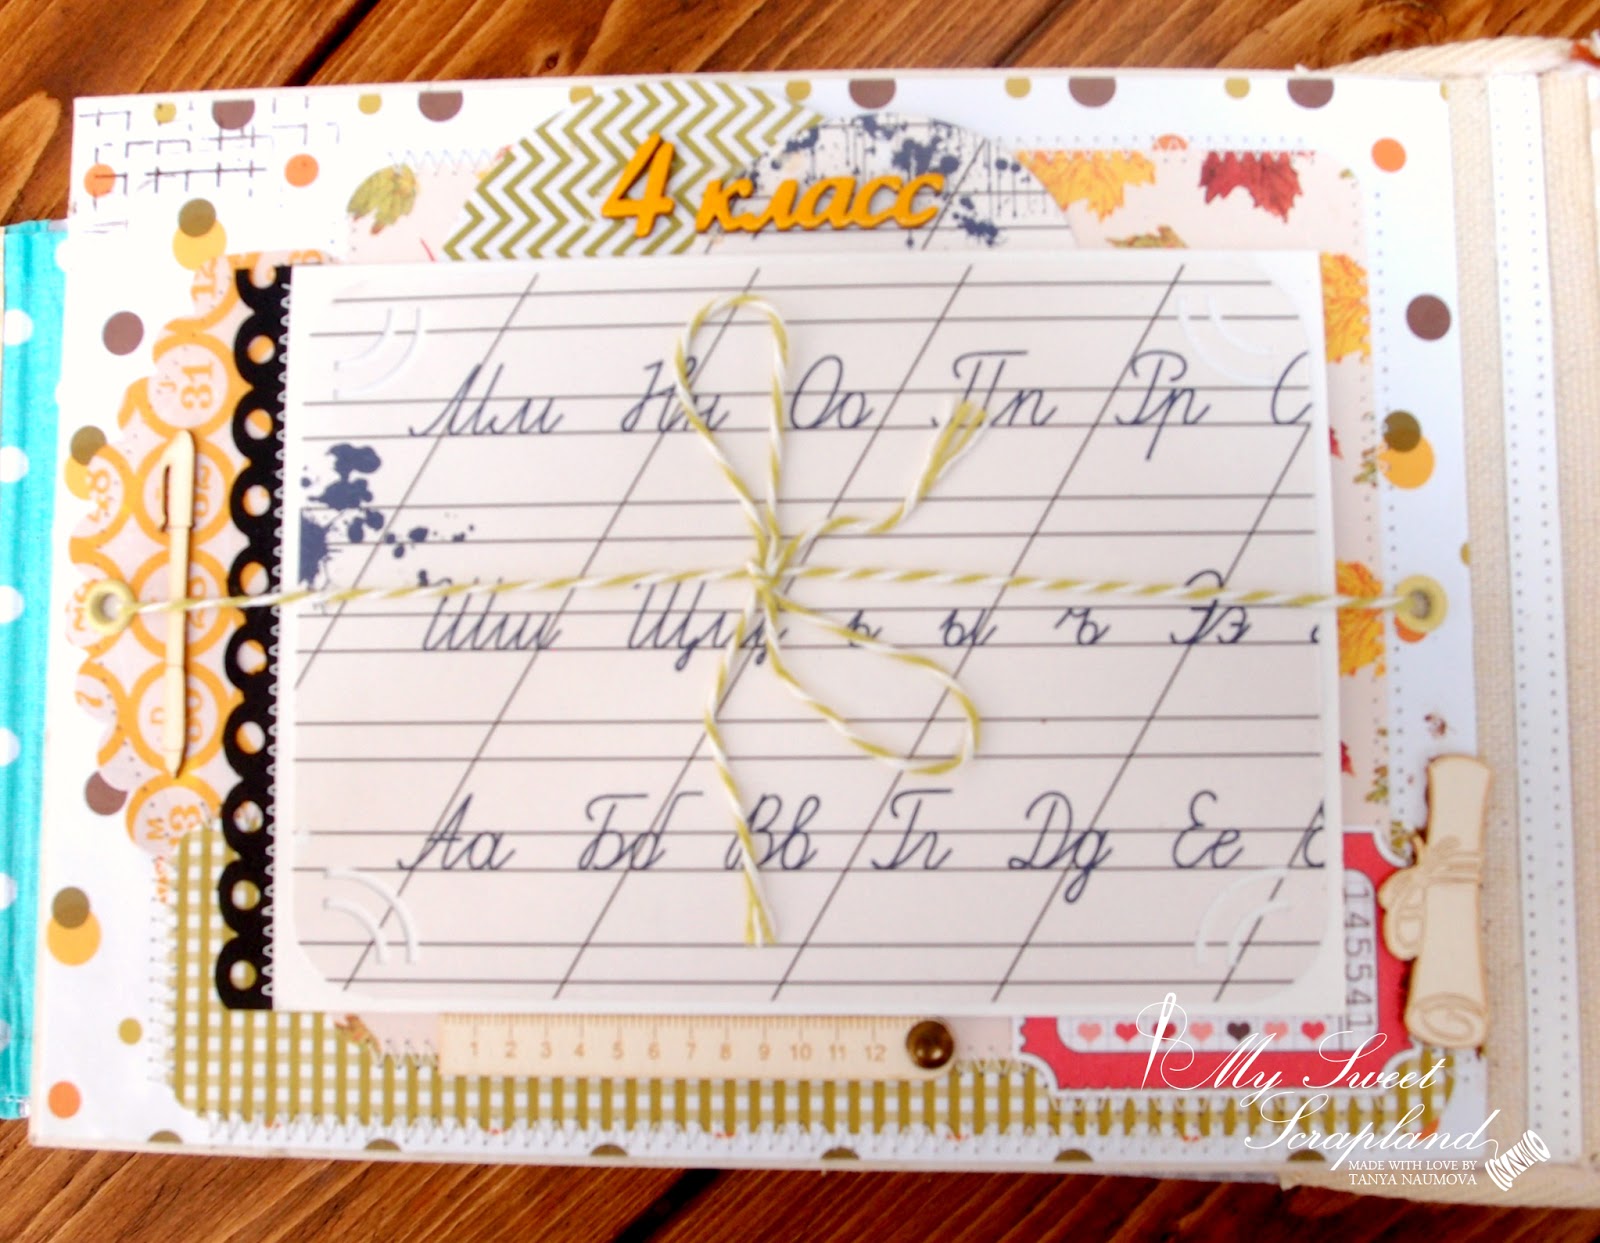 4 класс
Мм Нн Оо Пп Рр С
Шш Щщ ь ы ъ Ээ
Аа Бб Вв Гг Дд Ее
31
1 2 3 4 5 6 7 8 9 10 11 12
145541
My Sweet
Scrapland
MADE WITH LOVE BY
TANYA NAUMOVA